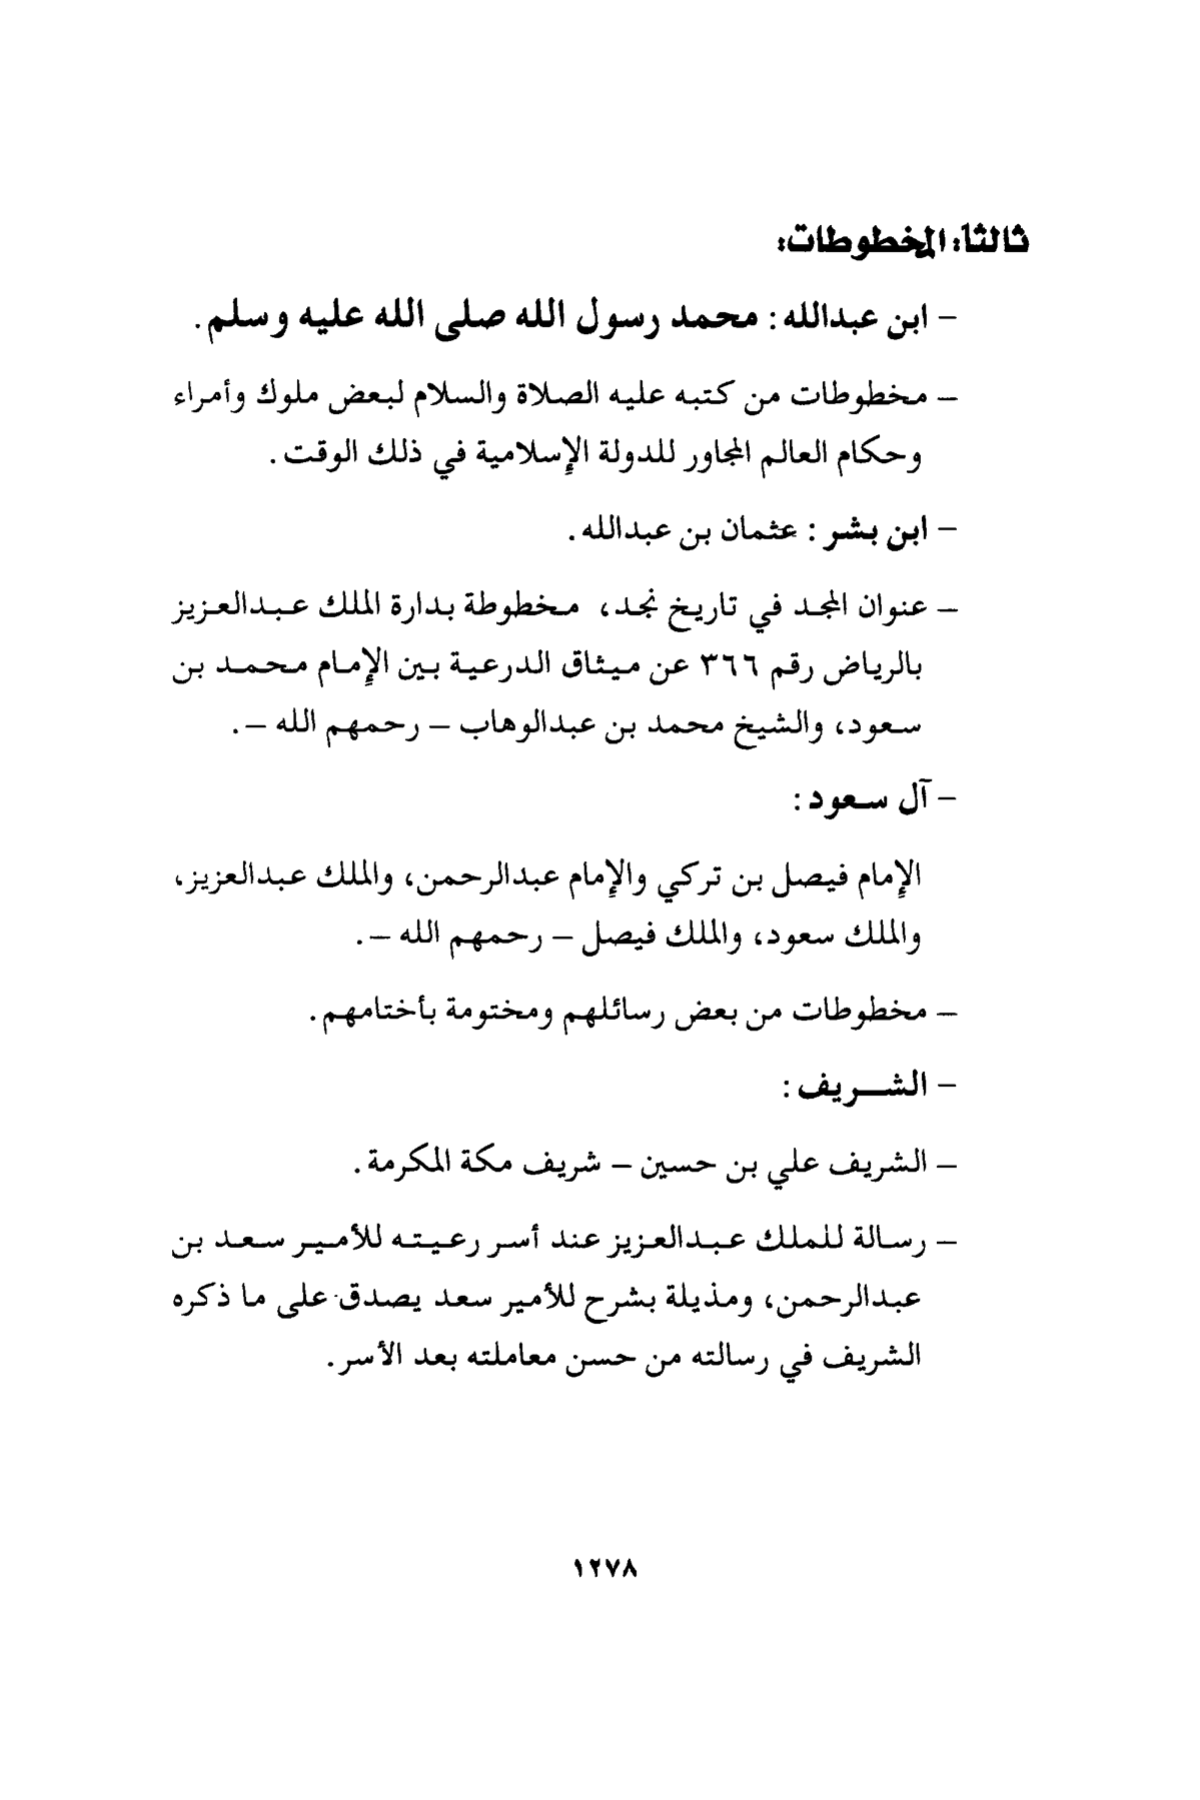 ثالثاً: المخطوطات:
– ابن عبدالله : محمد رسول الله صلى الله عليه وسلم .
– مخطوطات من كتبه عليه الصلاة والسلام لبعض ملوك وأمراء
وحكام العالم المجاور للدولة الإسلامية في ذلك الوقت .
– ابن بشر : عثمان بن عبدالله .
– عنوان المجد في تاريخ نجد، مخطوطة بدارة الملك عبدالعزيز
بالرياض رقم ٣٦٦ عن ميثاق الدرعية بين الإمام محمد بن
سعود، والشيخ محمد بن عبدالوهاب – رحمهم الله – .
– آل سعود :
الإمام فيصل بن تركي والإمام عبدالرحمن، والملك عبدالعزيز،
والملك سعود، والملك فيصل – رحمهم الله – .
– مخطوطات من بعض رسائلهم ومختومة بأختامهم .
– الشـــريف :
– الشريف علي بن حسين – شريف مكة المكرمة .
– رسالة للملك عبدالعزيز عند أسر رعيته للأمير سعد بن
عبدالرحمن، ومذيلة بشرح للأمير سعد يصدق على ما ذكره
الشريف في رسالته من حسن معاملته بعد الأسر .
١٢٧٨